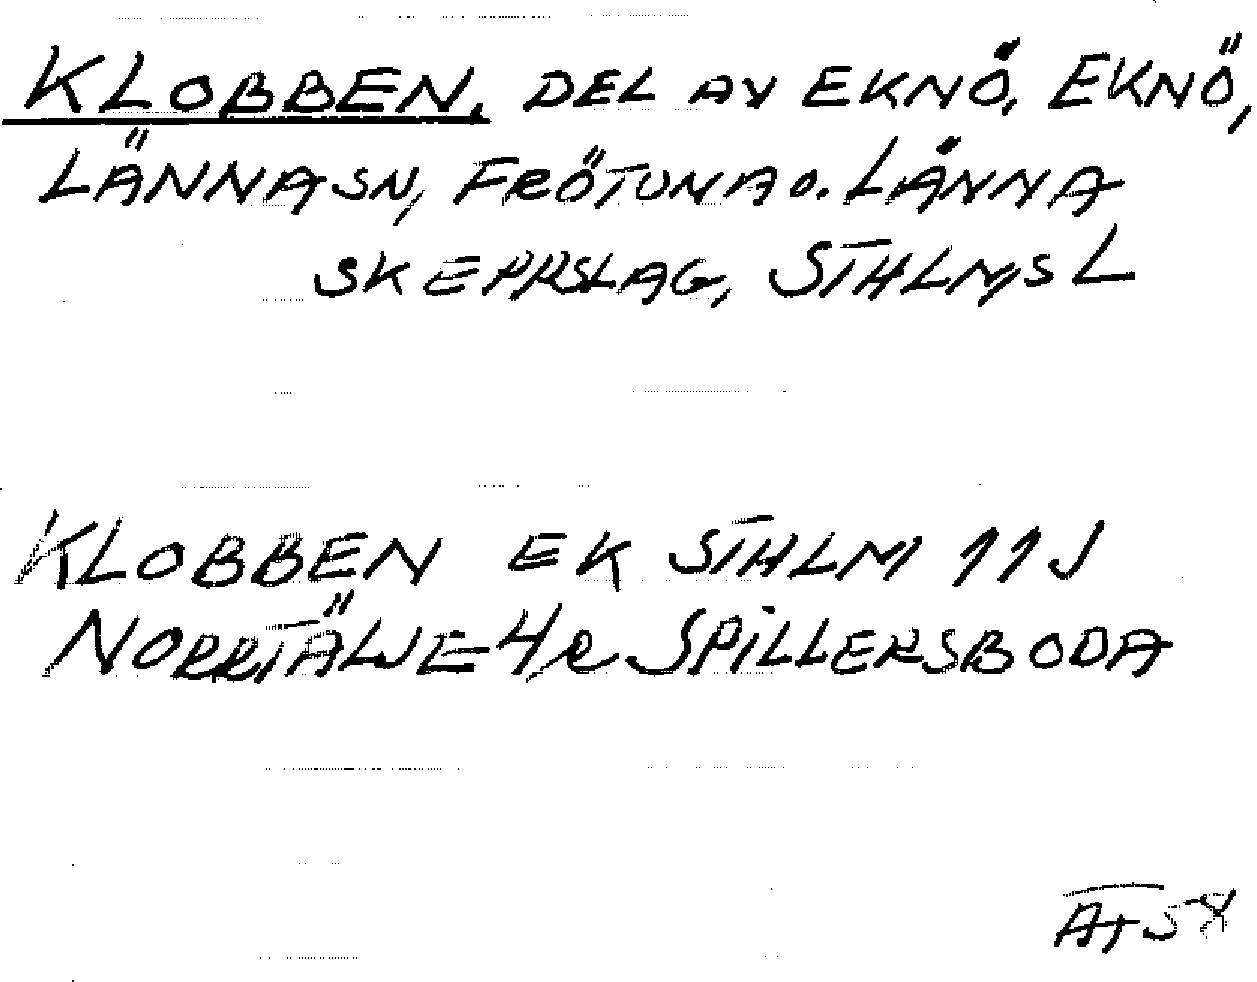 KLOBBEN, DEL AV EKNÖ, EKNÖ,
LÄNNA SN, FRÖTUNA O. LÄNNA
SKEPPSLAG, STHLMS L
KLOBBEN EK STHLM 11J
NORRTÄLJE 4/R SPILLERSBODA